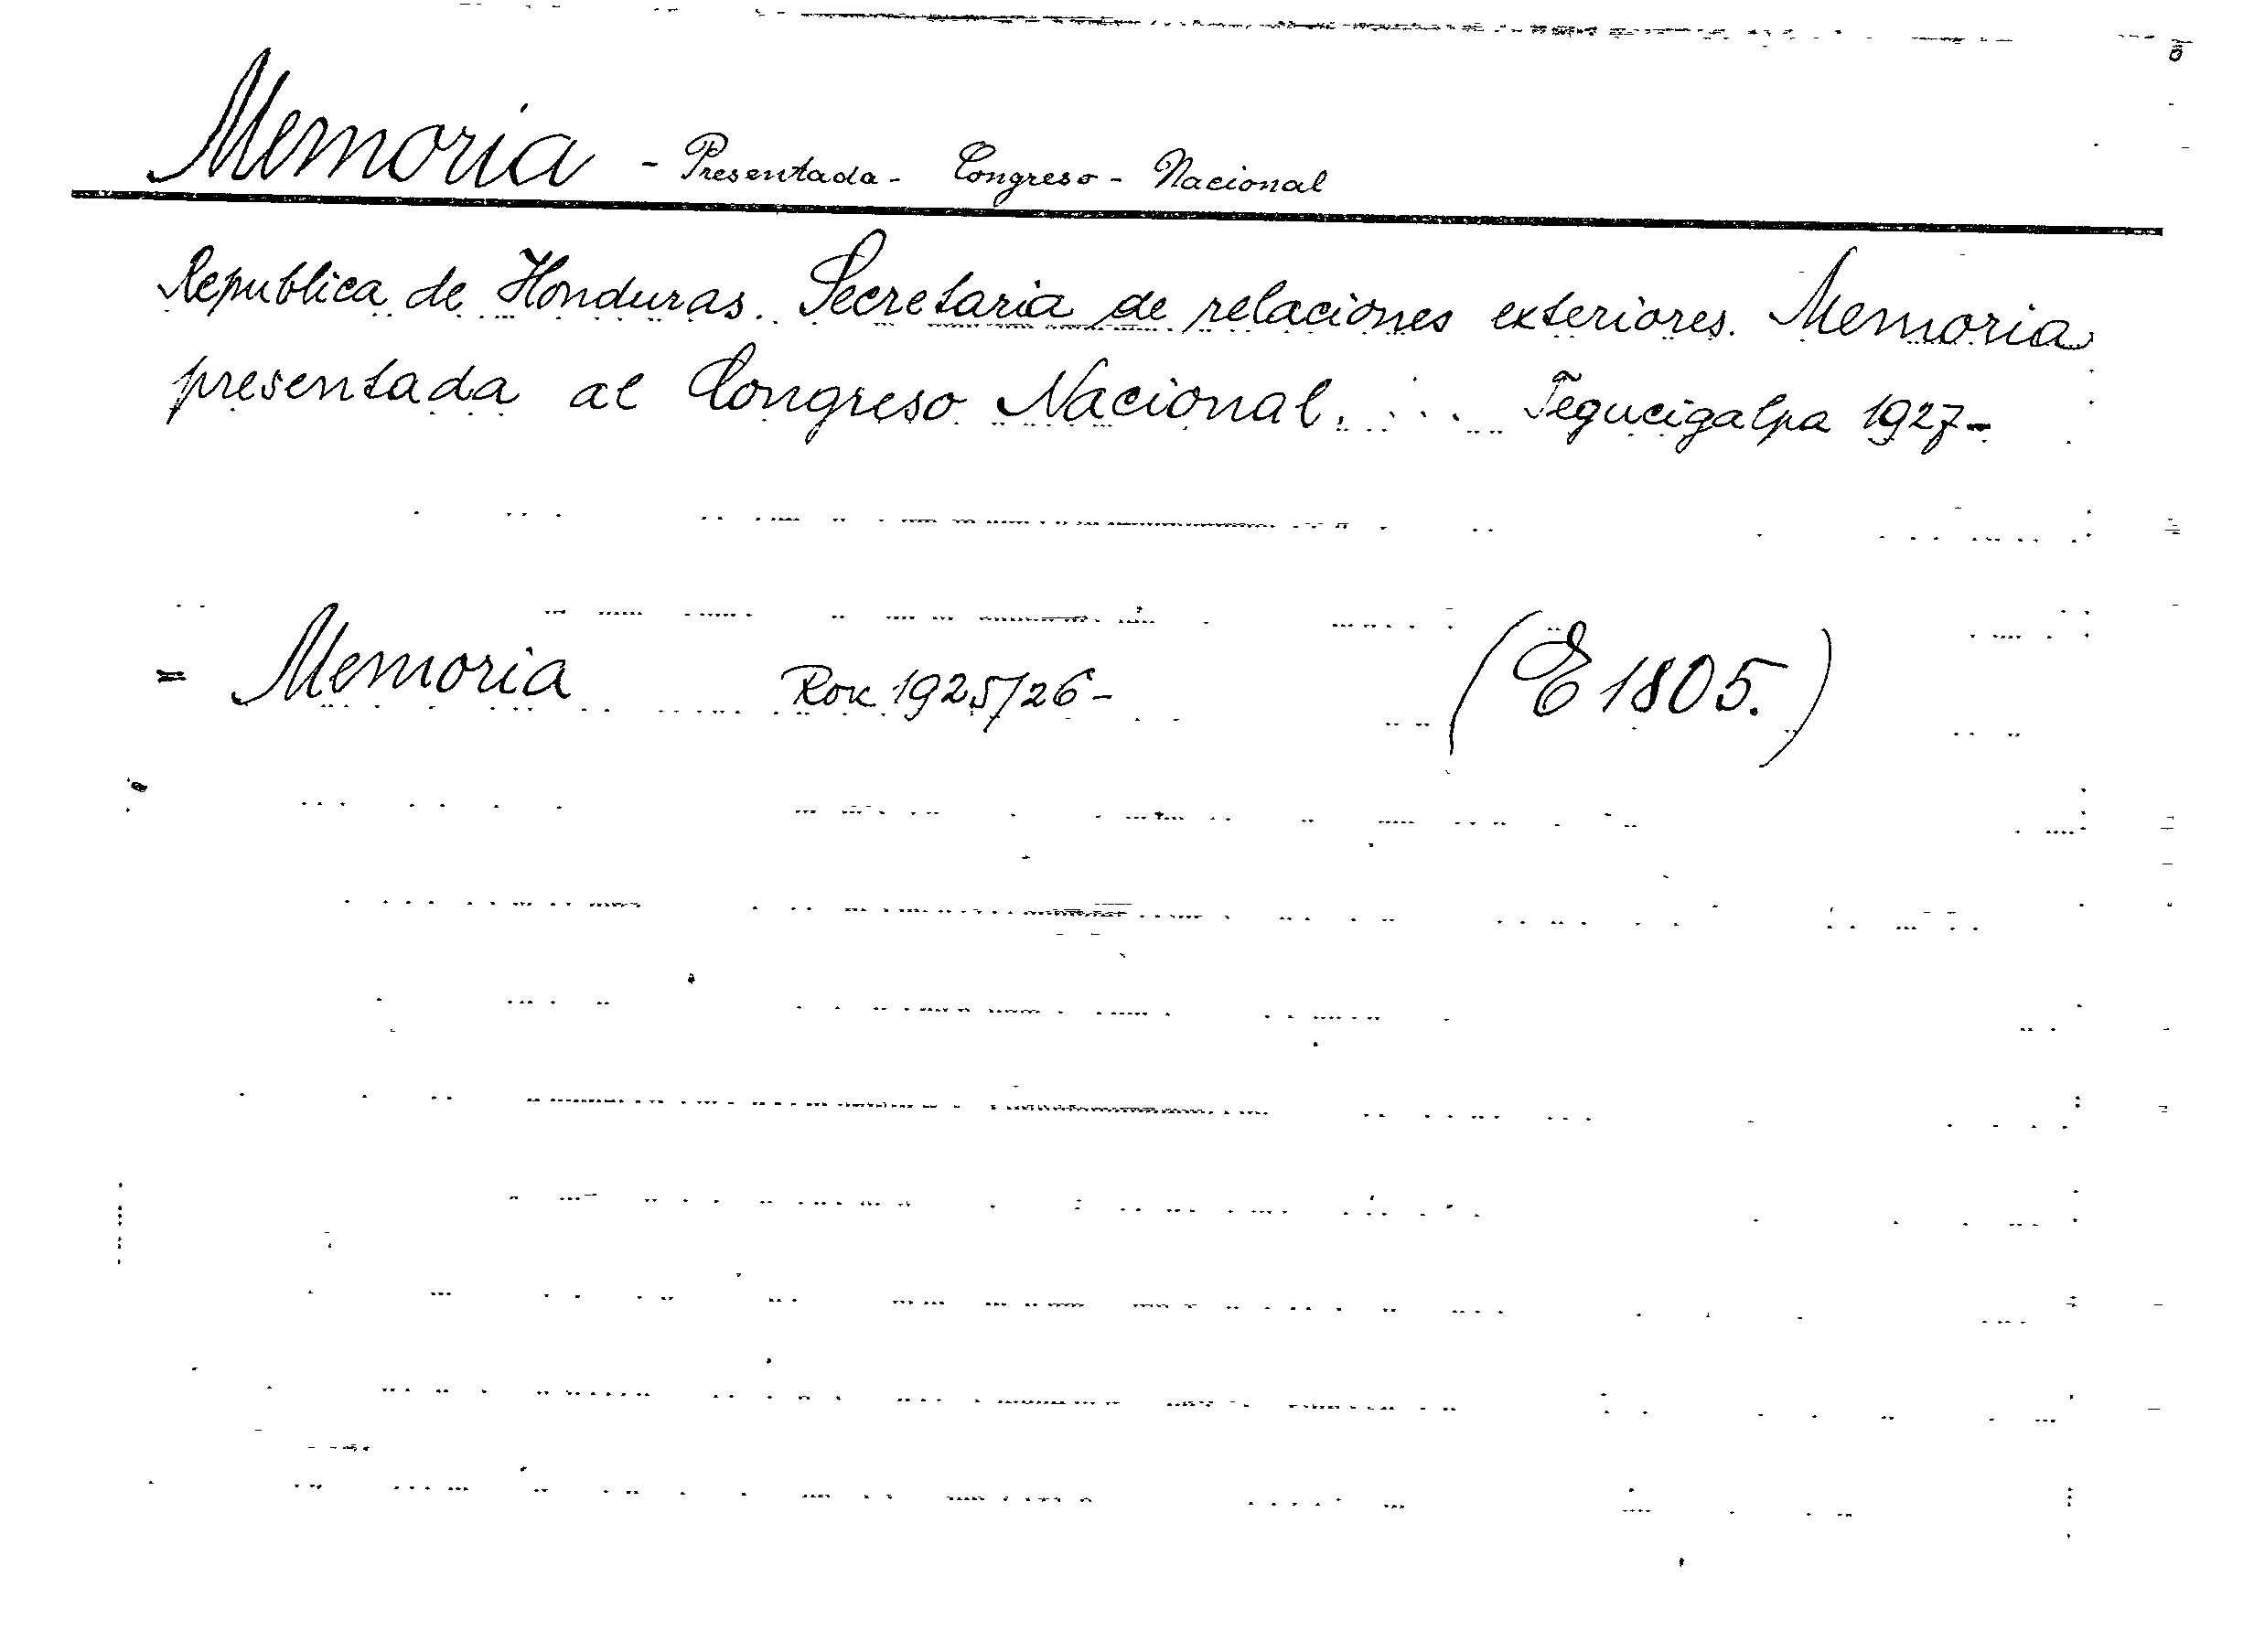 Memoria - Presentada - Congreso - Nacional
Republica de Honduras. Secretaria de relaciones exteriores. Memoria
presentada al Congreso Nacional. ... Tegucigalpa 1927-
= Memoria Rok 1925/26- (E 1805.)